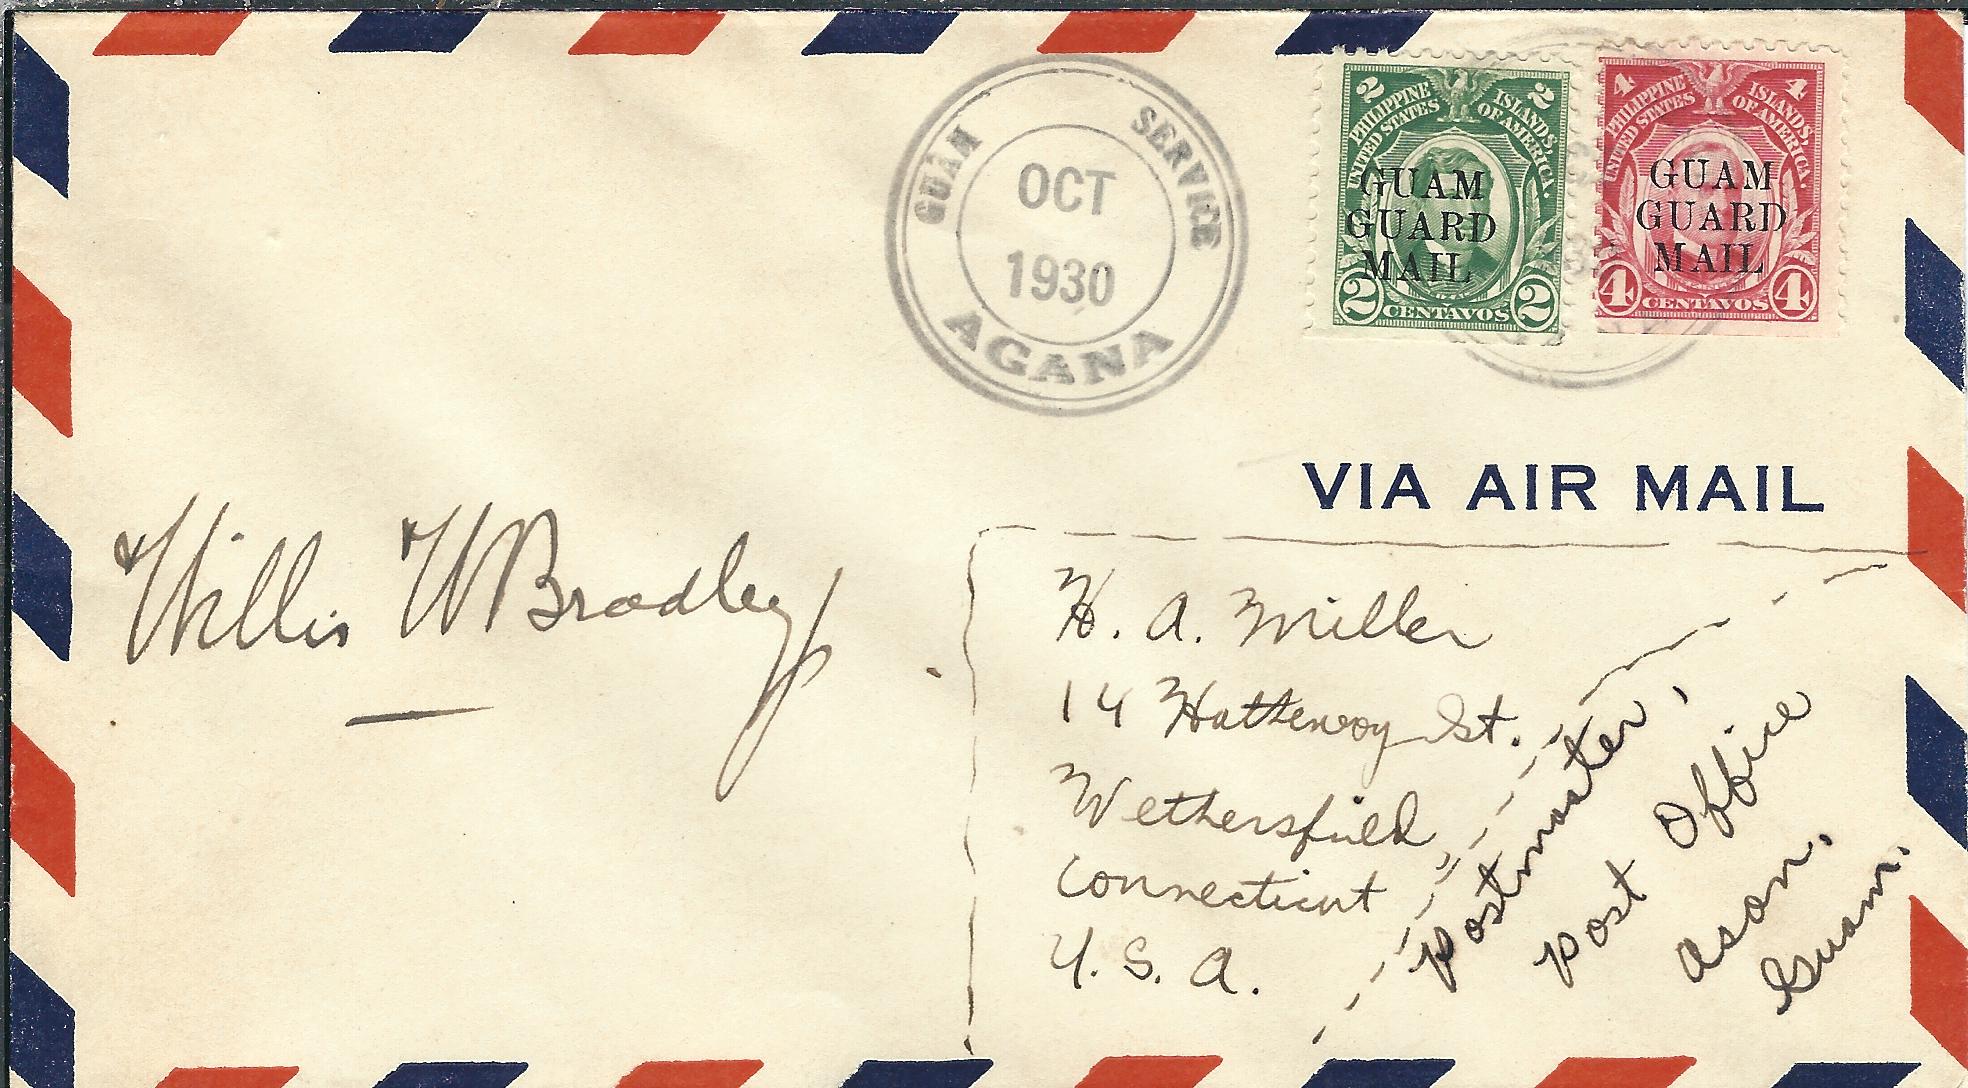 GUAM SERVICE
OCT
1930
AGANA
2 2
PHILIPPINE ISLANDS,
UNITED STATES OF AMERICA.
GUAM
GUARD
MAIL
2 CENTAVOS 2
4 4
PHILIPPINE ISLANDS
UNITED STATES OF AMERICA.
GUAM
GUARD
MAIL
4 CENTAVOS 4
VIA AIR MAIL
Willis W Bradley Jr
H. A. Miller
14 Hatheway St.
Wethersfield,
Connecticut
U. S. A.
Postmaster,
Post Office
Asan,
Guam.